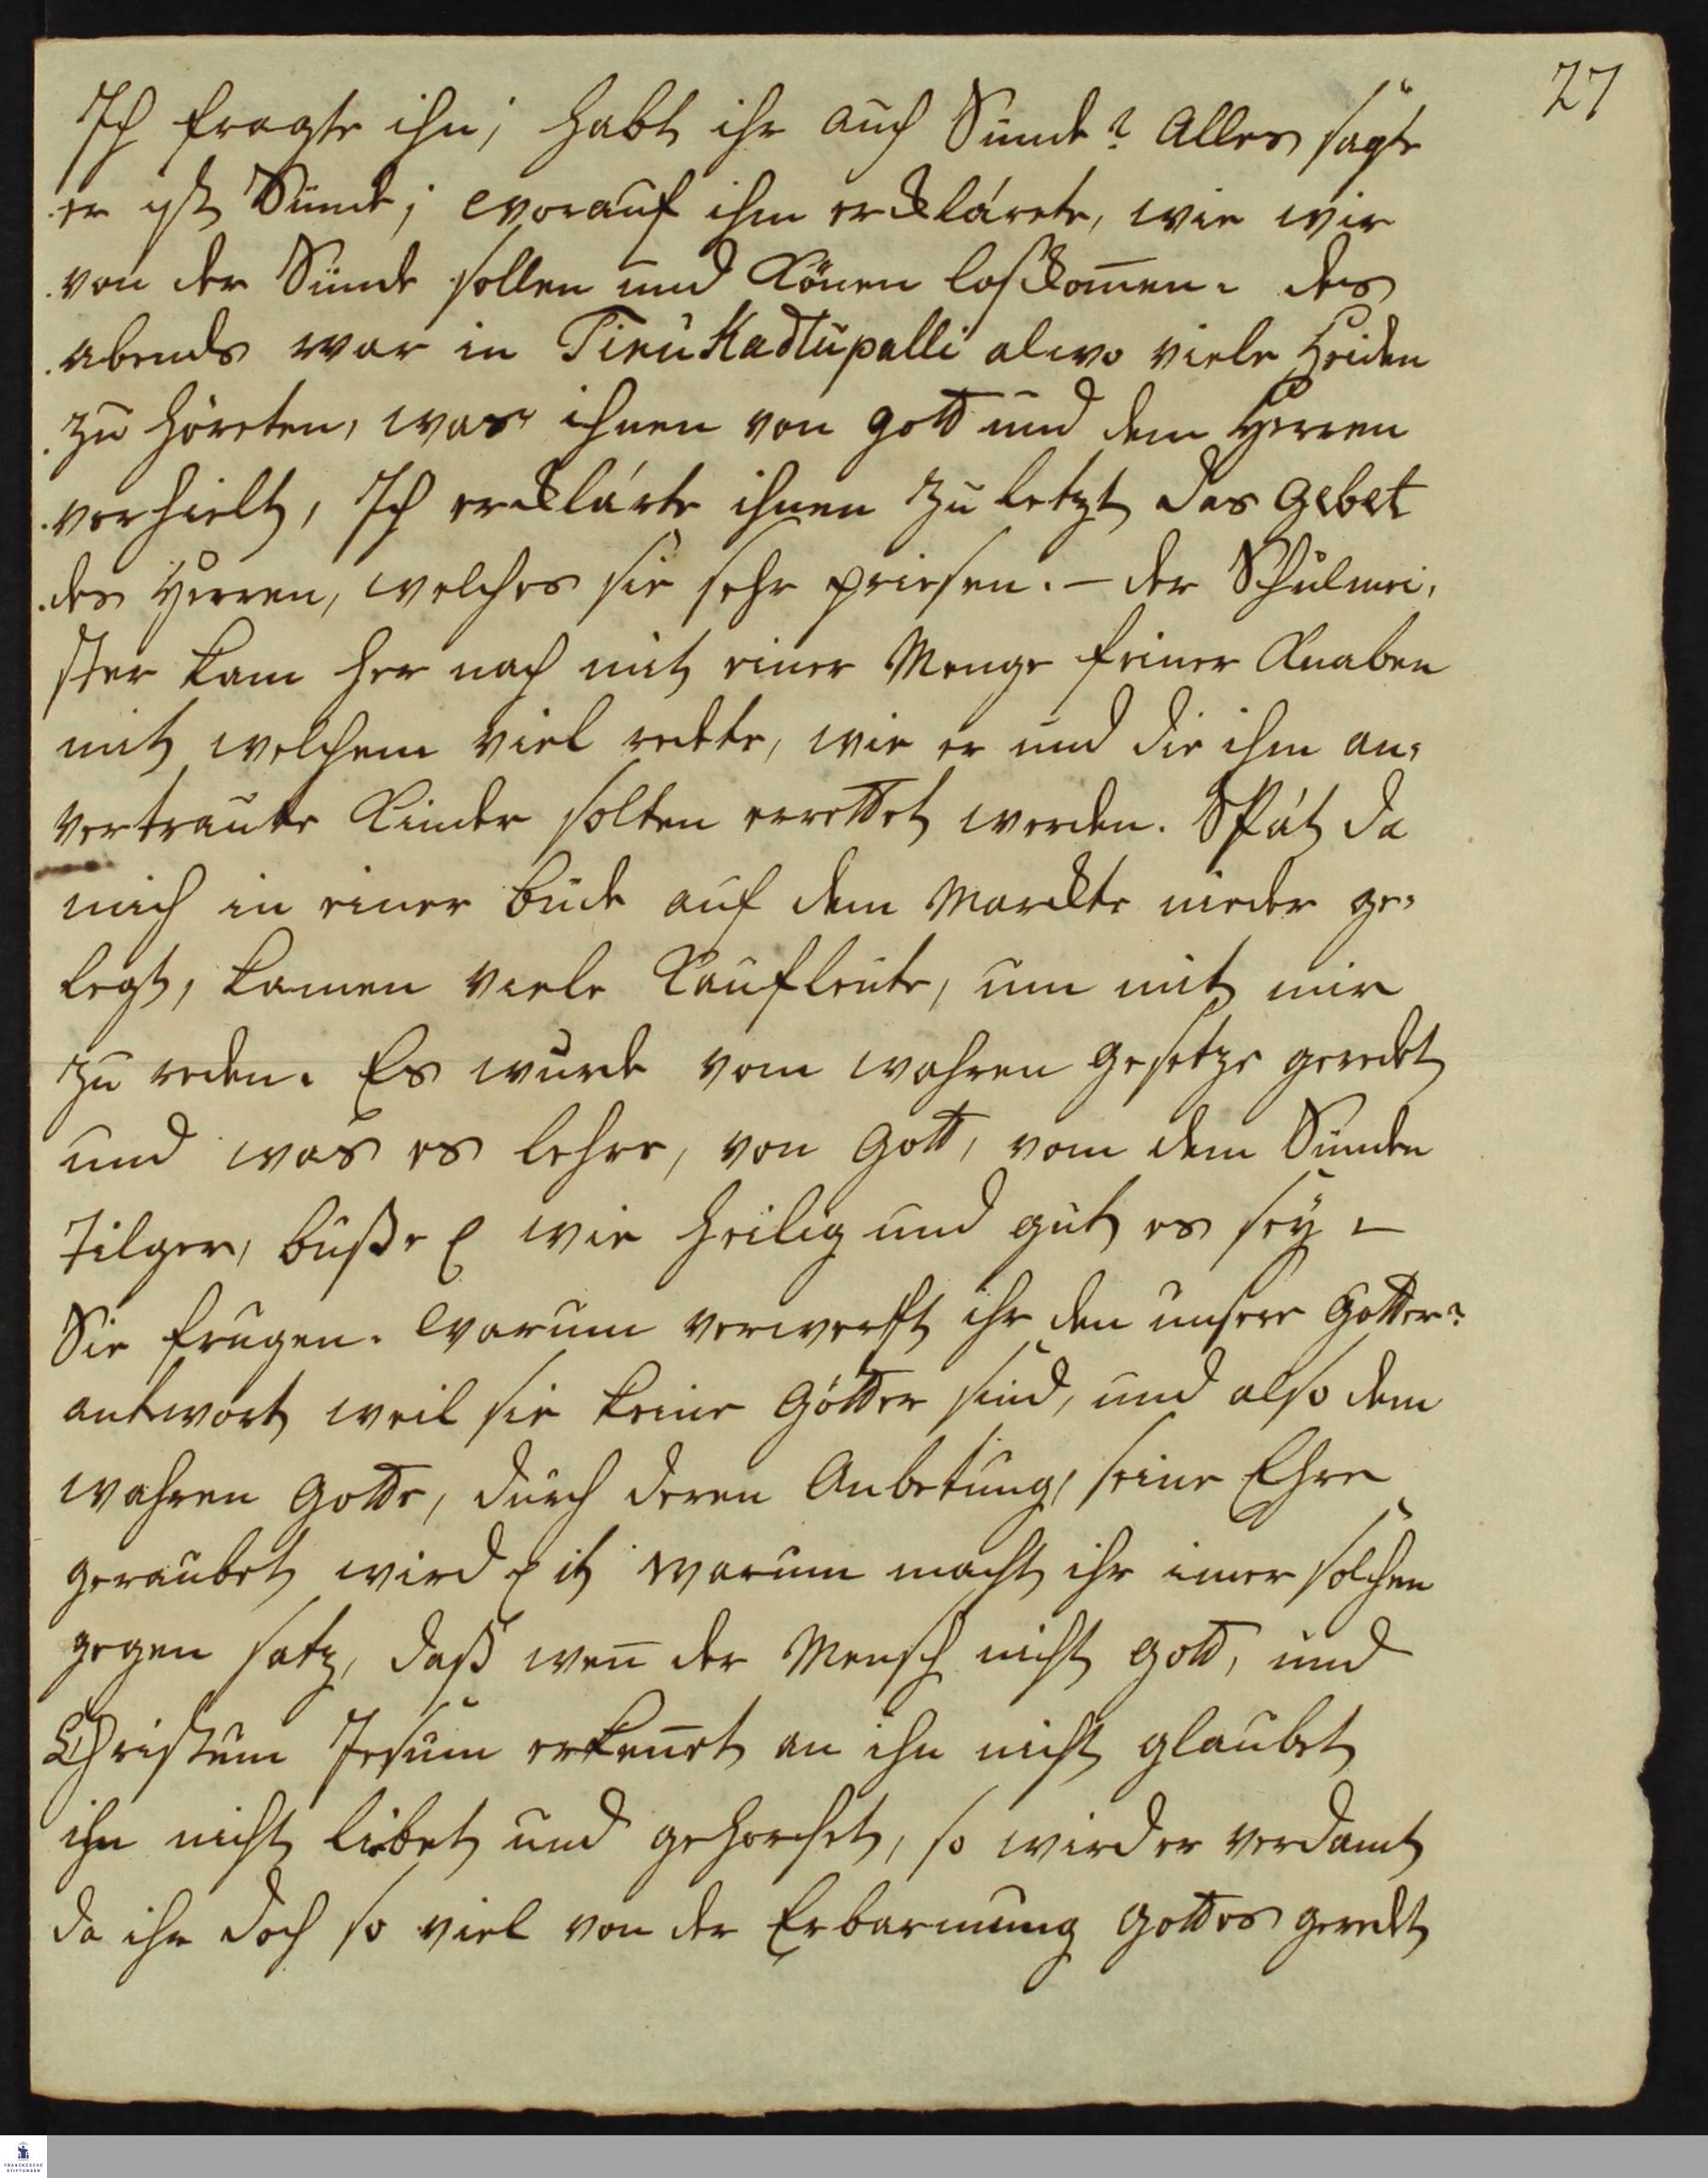 27
Ich fragte ihn; habt ihr auch Sünde? Alles sagte
er ist Sünde; worauf ihm ercklärete, wie wir
von der Sünde sollen und Könen loßkom̅en. des
abends war in TiruKadtupalli alwo viele Heiden
zu höreten, was ihnen von gott und dem Herren
vorhielt, Ich ercklärte ihnen zu letzt das gebet
des Herren, welches sie sehr priesen. – der Schulmei,
ster kam her nach mit einer Menge feiner Knaben
mit welchem viel redete, wie er und die ihm an,
vertraute Kinder solten errettet werden. Spät da
mich in einer bude auf dem Marckte nieder ge,
legt, kamen viele Kaufleute, um mit mir
zu reden. Es wurde vom wahren gesetze geredet
und was es lehre, von Gott, vom dem Sünden
Tilger, buße ꝛc wie heilig und gut es seÿ –
Sie frugen. Warum verwerfft ihr den unsere Götter?
antwort weil sie keine Götter sind, und also dem
wahren Gotte, durch deren Anbetung, seine Ehre
geraubet wird ꝛc it warum macht ihr imer solchen
gegen satz, daß wen̅ der Mensch nicht gott, und
Christum Jesum erken̅et an ihn nicht glaubet
ihn nicht liebet und gehorchet, so wird er verdamt
da ihr doch so viel von der Erbarmung Gottes geredet
FRANCKESCHE
STIFTUNGEN